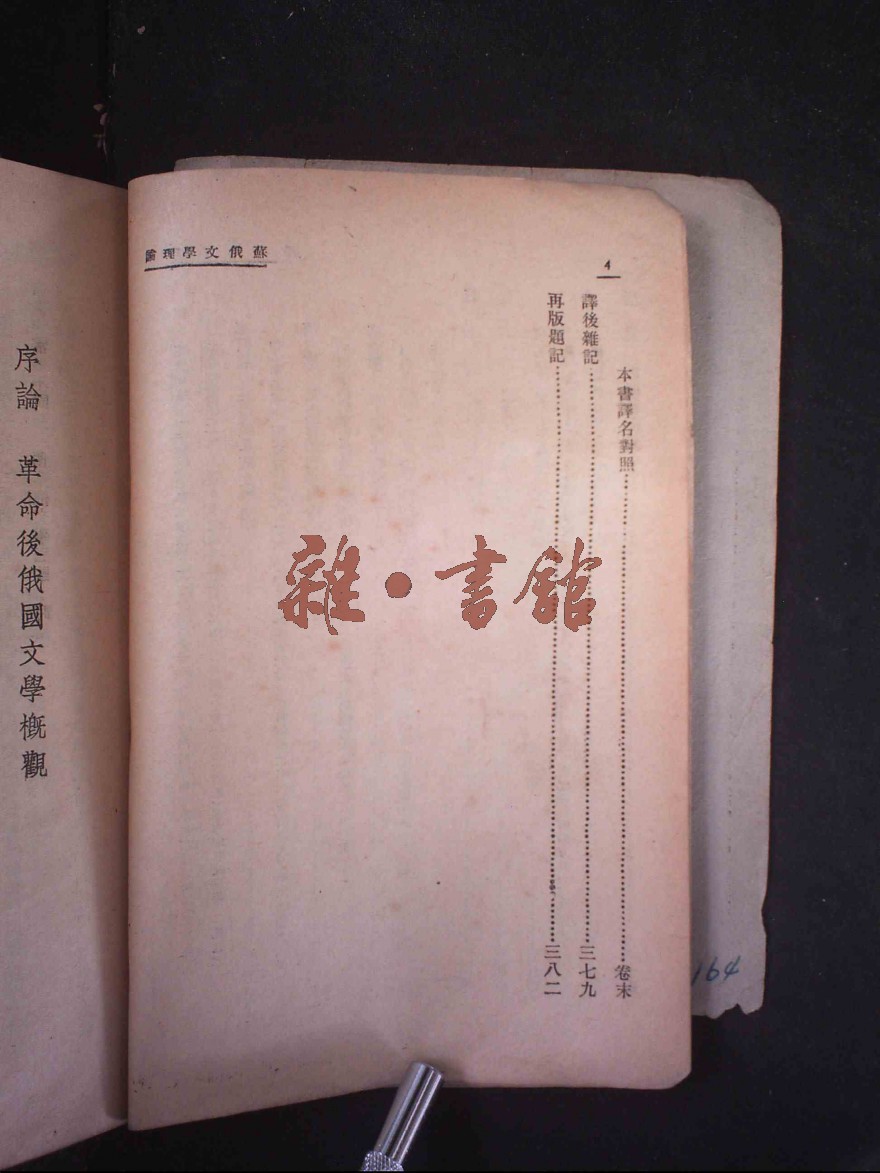 蘇俄文學理論
4
本書譯名對照……卷末
譯後雜記……三七九
再版題記……三八二
序論　革命後俄國文學概觀
雜·書館
164